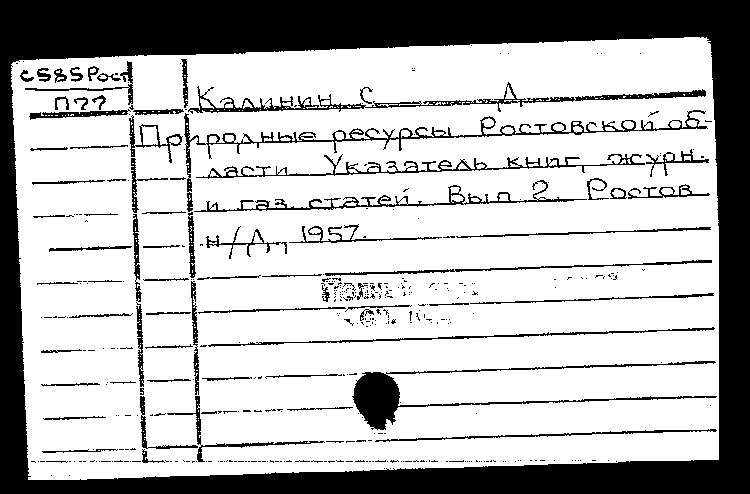 С585Рост
П77
Калинин, С. Д.
Природные ресурсы Ростовской об-
ласти. Указатель книг, журн.
и газ. статей. Вып. 2. Ростов
н/Д., 1957.